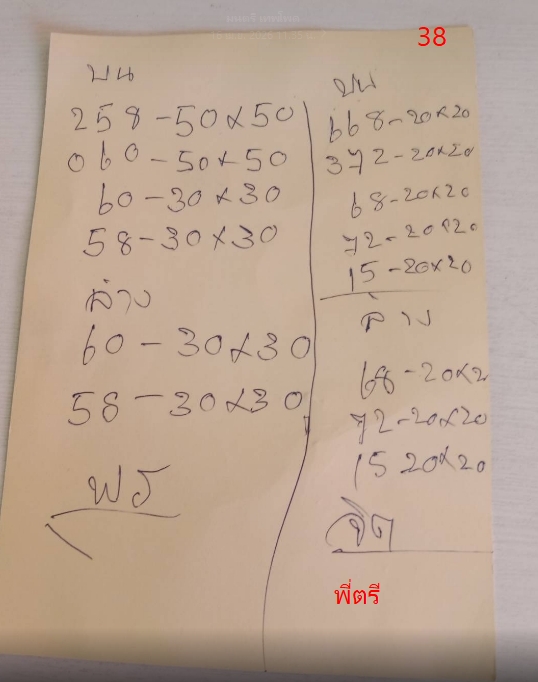 38
บน
258-50x50
060-50x50
60-30x30
58-30x30
ล่าง
60-30x30
58-30x30
พร
บน
668-20x20
372-20x20
68-20x20
72-20x20
15-20x20
ล่าง
68-20x2
72-20x20
15 20x20
จิต
พี่ตรี